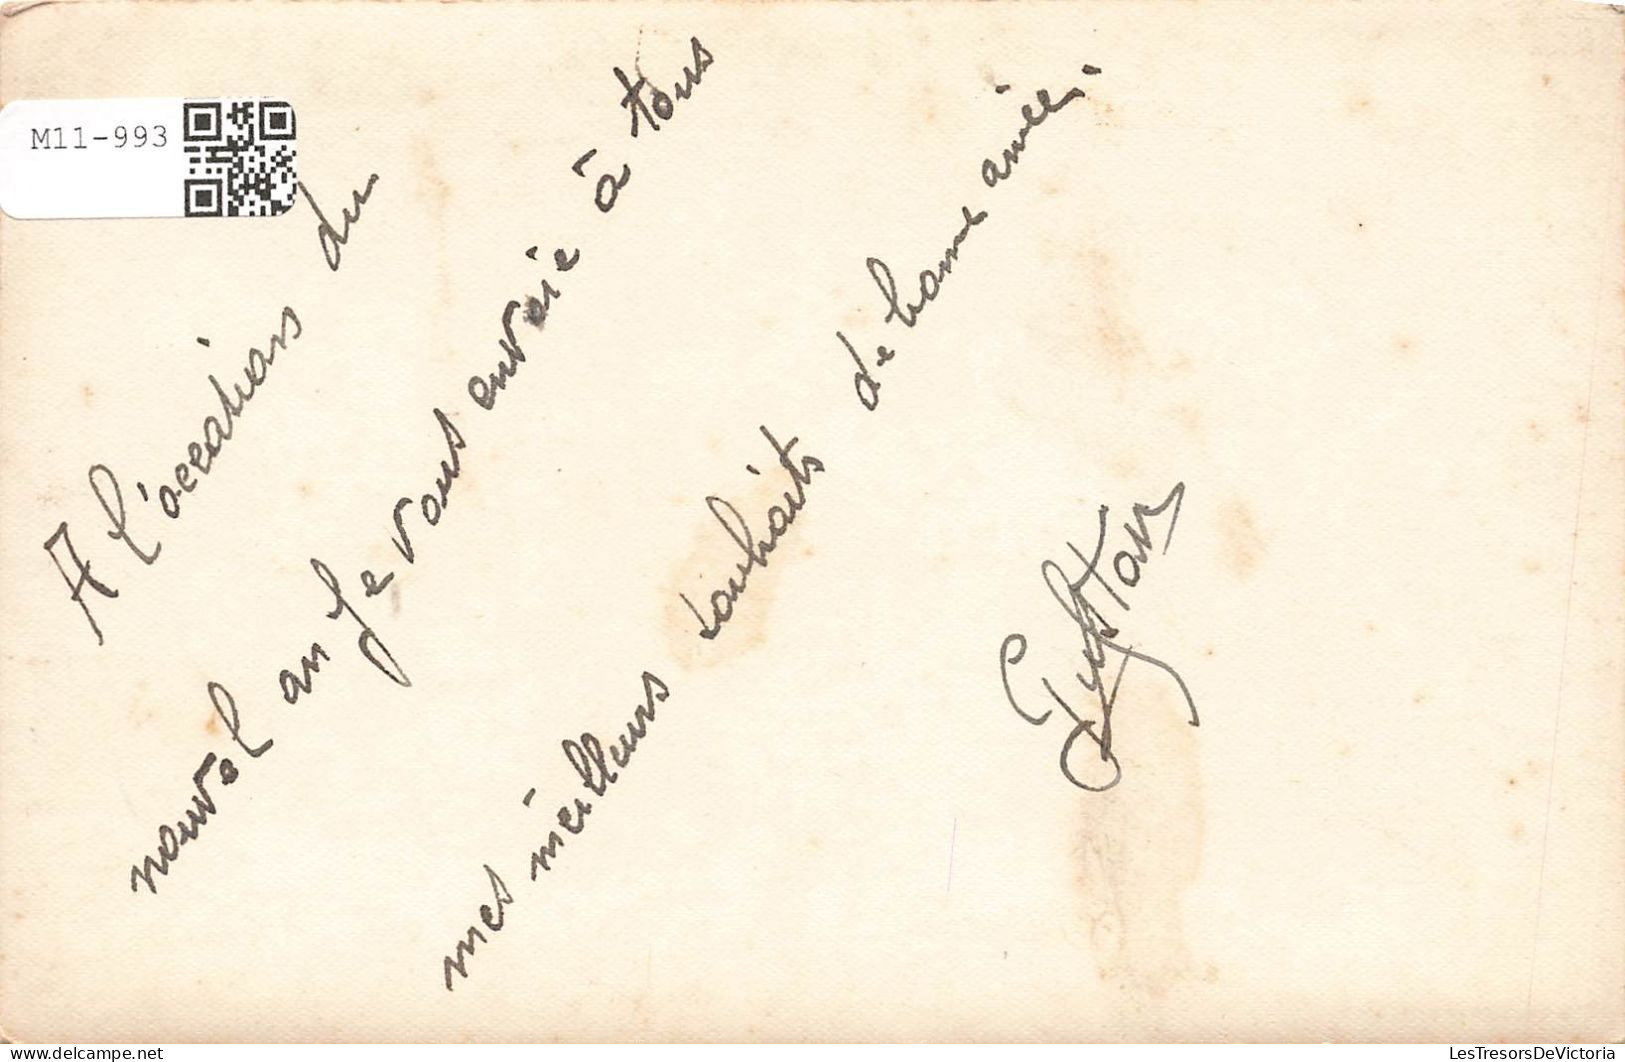 M11-993
A l'occations du
nouvel an Je vous envoie à tous
mes meilleurs souhaits de bonne année.
LesTresorsDeVictoria